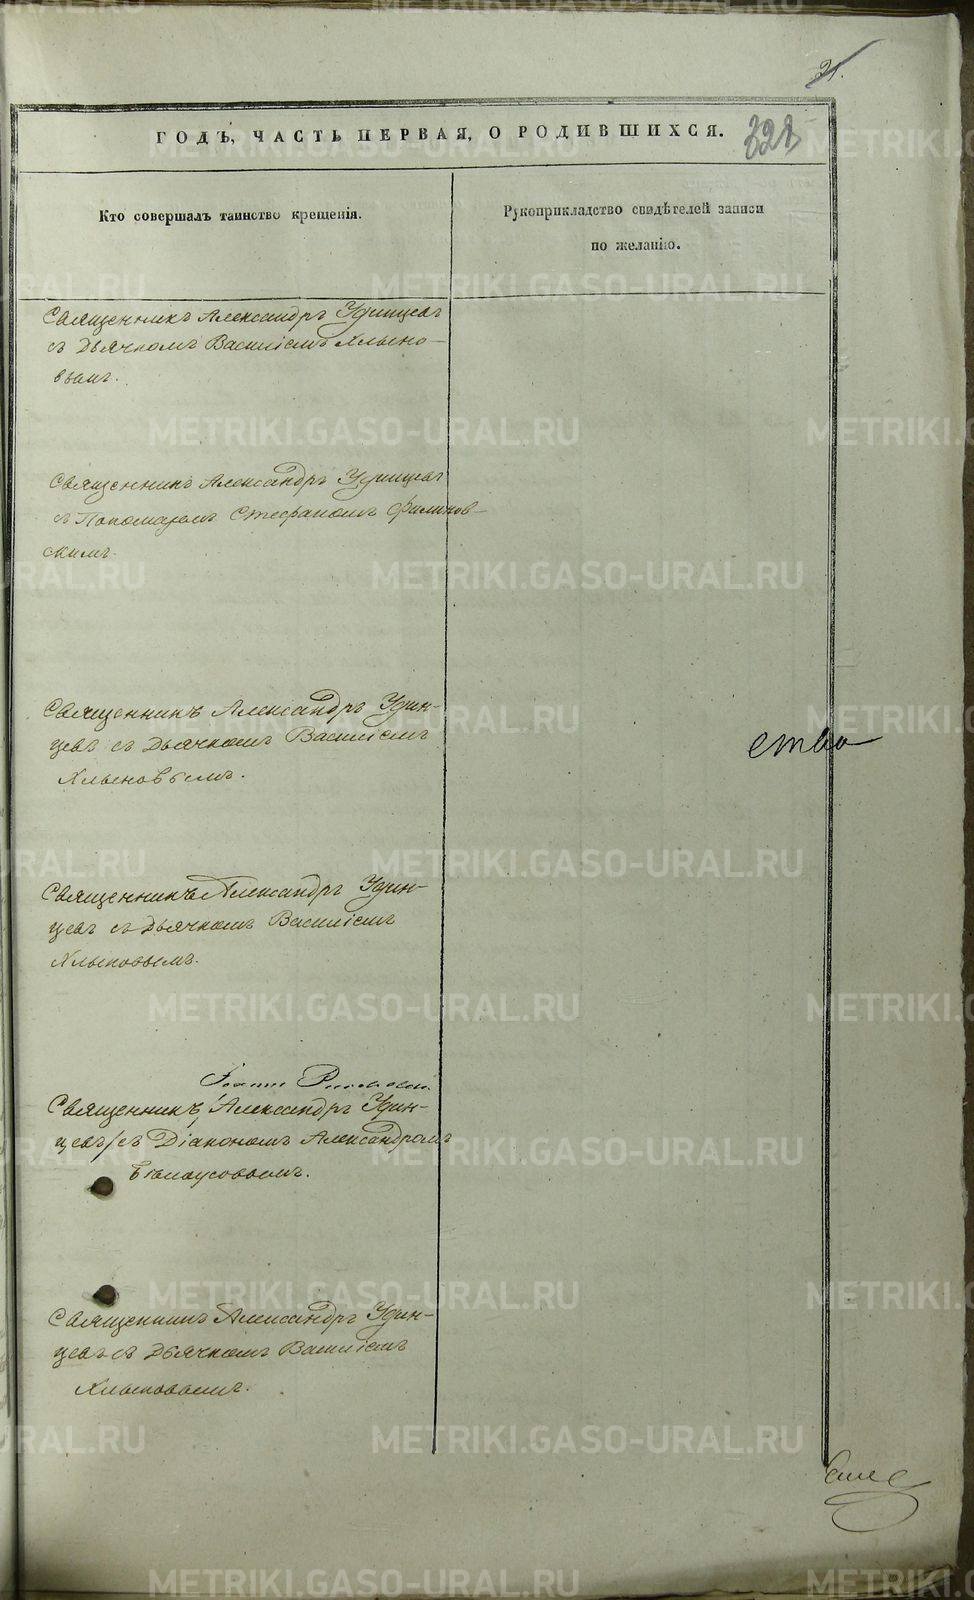 21.
ГОДЪ, ЧАСТЬ ПЕРВАЯ, О РОДИВШИХСЯ.
328
Кто совершалъ таинство крещенія.
Рукоприкладство свидѣтелей записи
по желанію.
Священникъ Александръ Удинцевъ
съ Дьячкомъ Василіемъ Хлыно-
вымъ.
Священникъ Александръ Удинцевъ
съ Пономаремъ Стефаномъ Филинов-
скимъ.
Священникъ Александръ Удин-
цевъ съ Дьячкомъ Василіемъ
Хлыновымъ.
ство
Священникъ Александръ Удин-
цевъ съ Дьячкомъ Василіемъ
Хлыновымъ.
Іоаннъ
Священникъ Александръ Удин-
цевъ съ Діакономъ Александромъ
Бѣлоусовымъ.
Священникъ Александръ Удин-
цевъ съ Дьячкомъ Василіемъ
Хлыновымъ.
METRIKI.GASO-URAL.RU